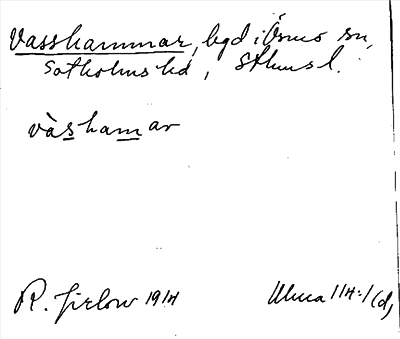 Vasshammar, bgd i Ösmo sn,
Sotholms hd, Sthms l.
vàshamar
R. Jirlow 1914
114:1 (d)